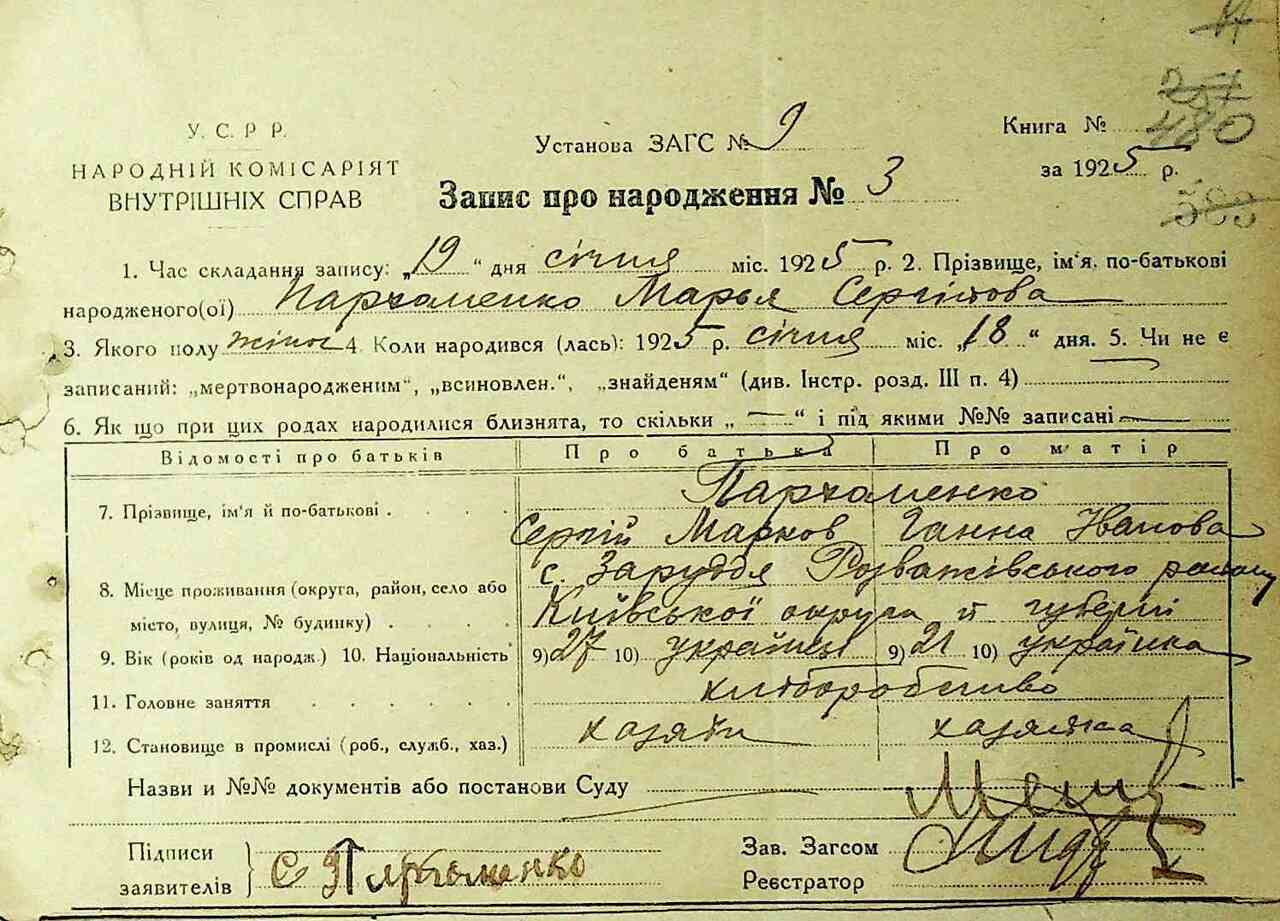 У. С. Р Р.
НАРОДНІЙ КОМІСАРІЯТ
ВНУТРІШНІХ СПРАВ
Установа ЗАГС № 9
Запис про народження № 3
Книга №
257
480
за 1925 р.
1. Час складання запису: „19“ дня січня міс. 1925 р. 2. Прізвище, ім'я, по-батькові
народженого(ої) Пархоменко Марья Сергіївова
3. Якого полу жіноч 4. Коли народився (лась): 1925 р. січня міс. „18“ дня. 5. Чи не є
записаний: „мертвонародженим“, „всиновлен.“, „знайденям“ (див. Інстр. розд. III п. 4)
6. Як що при цих родах народилися близнята, то скільки „—“ і під якими №№ записані —
Відомості про батьків Про батька Про матір
Пархоменко
7. Прізвище, ім'я й по-батькові . . . . Сергій Марков Ганна Иванова
с. Заруддя Розважівського району
8. Місце проживання (округа, район, село або
місто, вулиця, № будинку) . . . . Київської округа й губерні
9. Вік (років од народж.) 10. Національність 9) 27 10) українец 9) 21 10) українка
11. Головне заняття . . . . . . хліборобство
12. Становище в промислі (роб., служб., хаз.) хазяїн хазяйка
Назви и №№ документів або постанови Суду
Підписи
заявителів
С Пархоменко
Зав. Загсом
Реєстратор